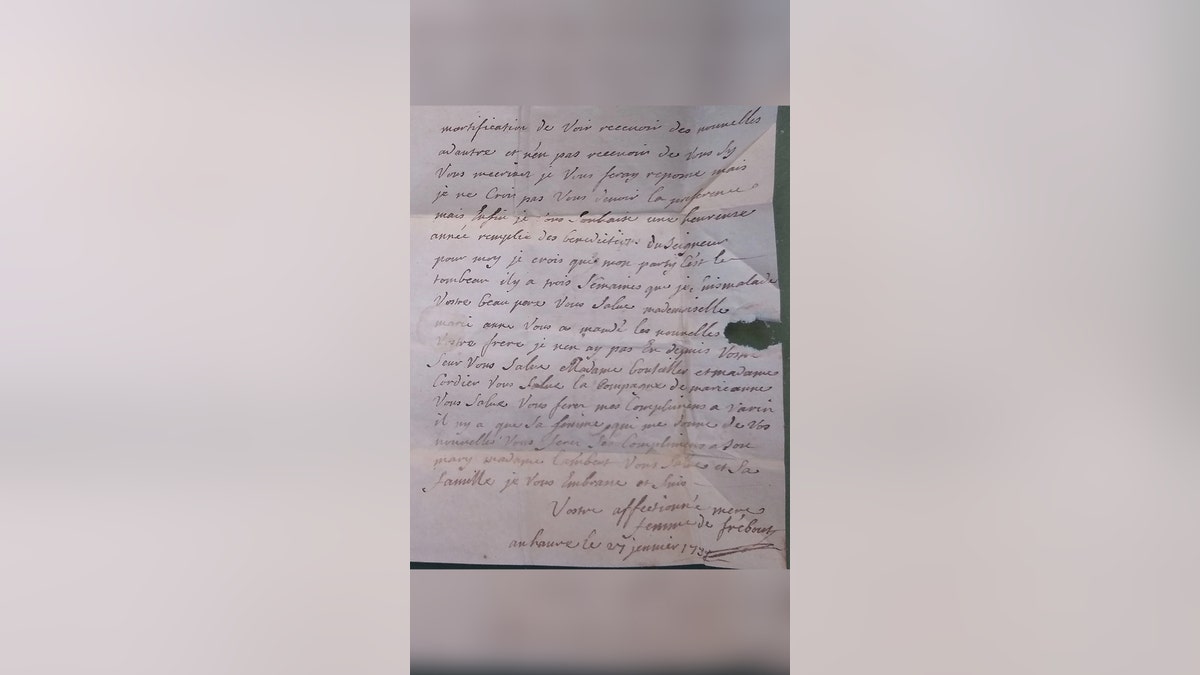 mortification de Voir recevoir des nouvelles
adautre et nen pas recevoir de Vous Sy
Vous mecrivez je Vous feray reponse mais
je ne Croi pas Vous devoir la preference
mais Enfin je Vous Souhaite une heureuse
année remplie des benedictions du Seigneur
pour moy je crois que mon party Cest le
tombeau il y a trois Semaines que je Suis malade
Vostre beau pere Vous Salue mademoiselle
marie anne Vous a mandé les nouvelles
Vostre frere je nen ay pas Eu depuis Vostre
Seur Vous Salue Madame et madame
Cordier Vous Salue la Compagne de marie anne
Vous Salue Vous ferez mes Complimens a Varin
il ny a que Sa femme qui me donne de Vos
nouvelles Vous ferez Ses Complimens a Son
mary madame Lambert Vous Salue et Sa
famille je Vous Embrasse et Suis
Vostre affectionnée mere
femme de frébourg
au havre le 27 jenvier